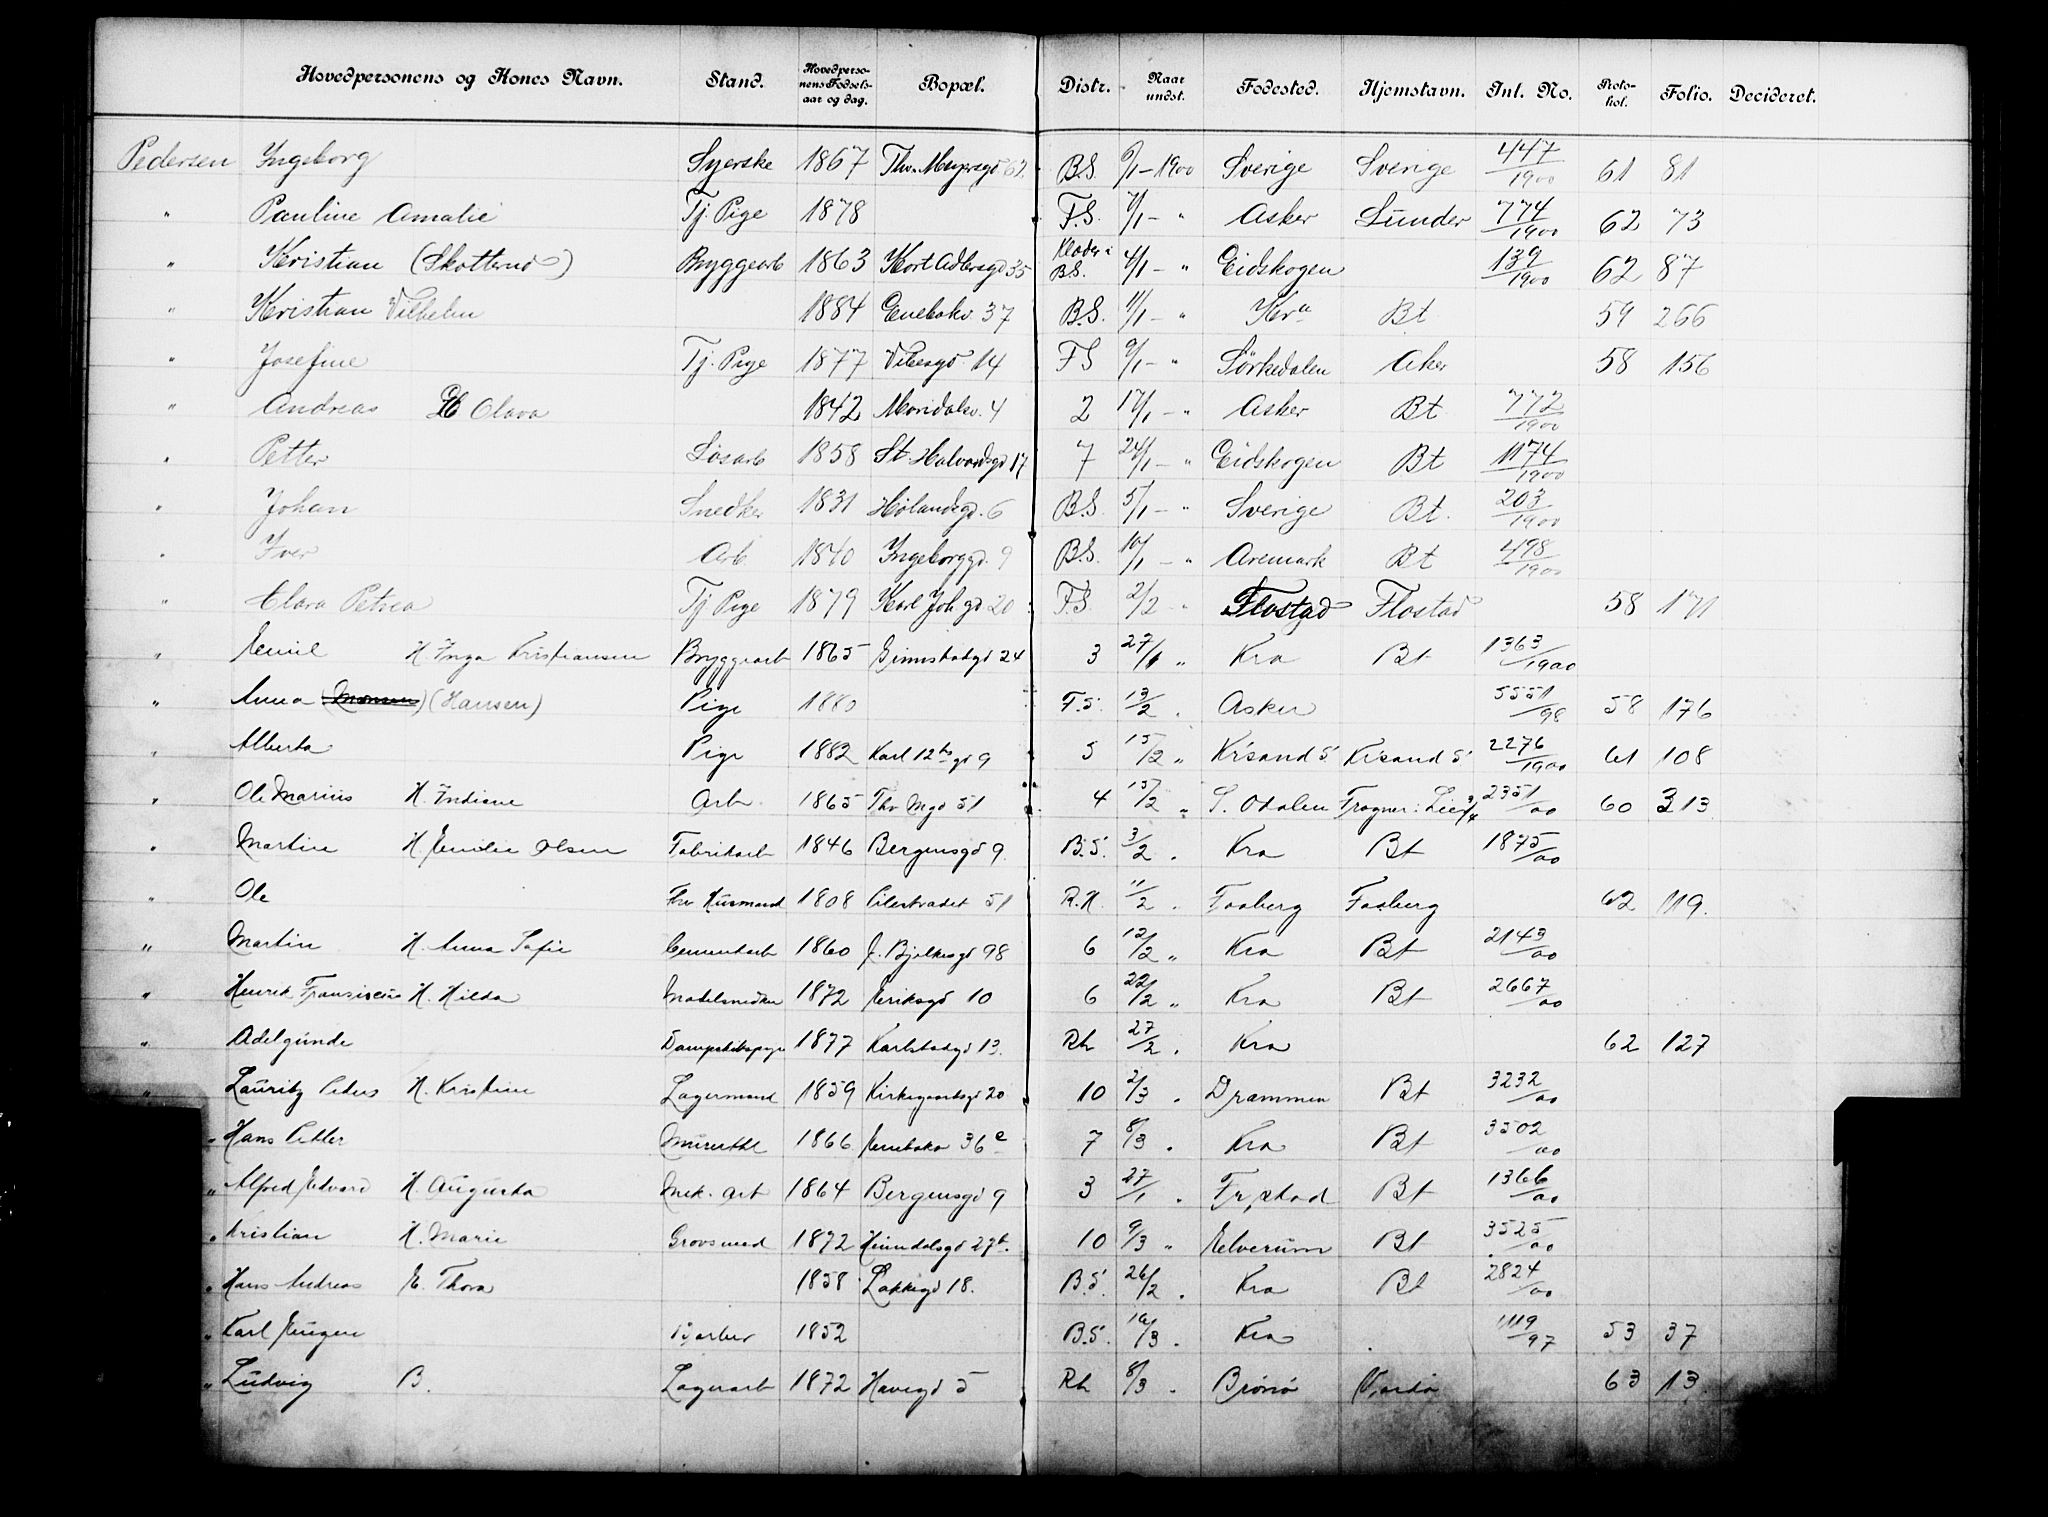 Hovedpersonens og Kones Navn. Stand. Hovedpersonens Fødselsaar og dag. Bopæl. Distr. Naar undst. Fødested. Hjemstavn. Int. No. Protokol. Folio. Decideret.
Pedersen Ingeborg Syerske 1867 Thv. Meyersgd 62. B.S. 6/1 - 1900 Sverige Sverige 447/1900 61 81
" Pauline Amalie Tj. Pige 1878 F.S. 7/1 - " Asker Sunder 774/1900 62 73
" Kristian (Skotterud) Bryggearb 1863 Kort Adlersgd 35 B.S. 4/1 - " Eidskogen 139/1900 62 87
" Kristian Vilhelm 1884 Enebakv 37 B.S. 11/1 - " Kra Bt 59 266
" Josefine Tj. Pige 1877 Vibesgd 14 F.S 9/1 - " Sørkedalen Aker 58 156
" Andreas H Olava 1842 Maridalsv. 4 2 17/1 - " Asker Bt 772/1900
" Petter Løsarb 1858 St Halvardsgd 17 7 24/1 - " Eidskogen Bt 1174/1900
" Johan Snedker 1831 Hølandsgd. 6 B.S. 5/1 - " Sverige Bt. 203/1900
" Iver Arb. 1840 Ingeborggd. 9 B.S. 10/1 - " Aremark Bt 498/1900
" Clara Petrea Tj Pige 1879 Karl Joh. gd 20 F.S 2/2 - " Flostad Flostad 58 171
" Emil H. Inga Kristiansen Bryggearb 1865 Grimstadgd 24 3 27/1 " Kra Bt 1363/1900
" Anna (Hansen) Pige 1880 F.S. 13/2 " Asker 5551/98 58 176
" Alberta Pige 1882 Karl 12tes gd 9 5 15/2 " Kr'sand S Kr'sand S 2276/1900 61 108
" Ole Marius H. Indiane Arb. 1865 Thv Mgd 51 4 15/2 " S. Odalen Frogner i Lier 2351/00 60 313
" Martin H. Emilie Olsen Fabrikarb 1846 Bergensgd 9. B.S. 3/2 " Kra Bt 1875/00
" Ole Fhv Husmand 1808 Pilestrædet 51 R.H. 11/2 " Faaberg Faaberg 62 119.
" Martin H. Anna Sofie Cementarb 1860 J. Bjelkesgd 98 6 12/2 " Kra Bt 2143/00
" Henrik Fransiscus H. Hilda Modelsnedker 1872 Eriksgd 10 6 22/2 " Kra Bt 2667/00
" Adelgunde Dampskibspige 1877 Karlstadgd 13. Rh 27/2 " Kra 62 127
" Lauritz Peder H. Kristine Lagermand 1859 Kirkegaardsgd 20 10 2/3 " Drammen Bt 3232/00
" Hans Petter Murerhdl 1866 Enebakv 36 c 7 8/3 " Kra Bt 3502/00
" Alfred Edvard H. Augusta Mek. arb 1864 Bergensgd 9 3 27/1 " Fr.stad Bt 1366/00
" Kristian H. Marie Grovsmed 1872 Heimdalsgd 27 b. 10 9/3 " Elverum Bt 3525/00
" Hans Andreas E. Thora 1858 Lakkegd 18. B.S. 26/2 " Kra Bt 2824/00
" Karl Jørgen Barber 1852 B.S. 16/3 " Kra 1119/97 53 37
" Ludvig B. Lagerarb 1872 Havegd 5 Rh 8/3 " Brønø Vardø 63 13.